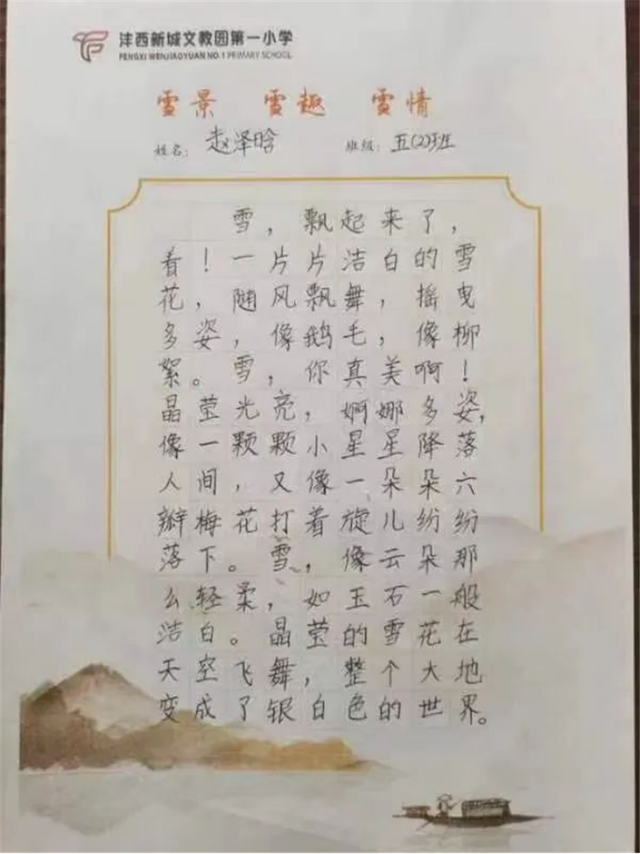 沣西新城文教园第一小学
FENGXI WENJIAOYUAN NO.1 PRIMARY SCHOOL
雪景 雪趣 雪情
姓名: 赵泽晗 班级: 五(2)班
雪，飘起来了，
看！一片片洁白的雪
花，随风飘舞，摇曳
多姿，像鹅毛，像柳
絮。雪，你真美啊！
晶莹光亮，婀娜多姿，
像一颗颗小星星降落
人间，又像一朵朵六
瓣梅花打着旋儿纷纷
落下。雪，像云朵那
么轻柔，如玉石一般
洁白。晶莹的雪花在
天空飞舞，整个大地
变成了银白色的世界。